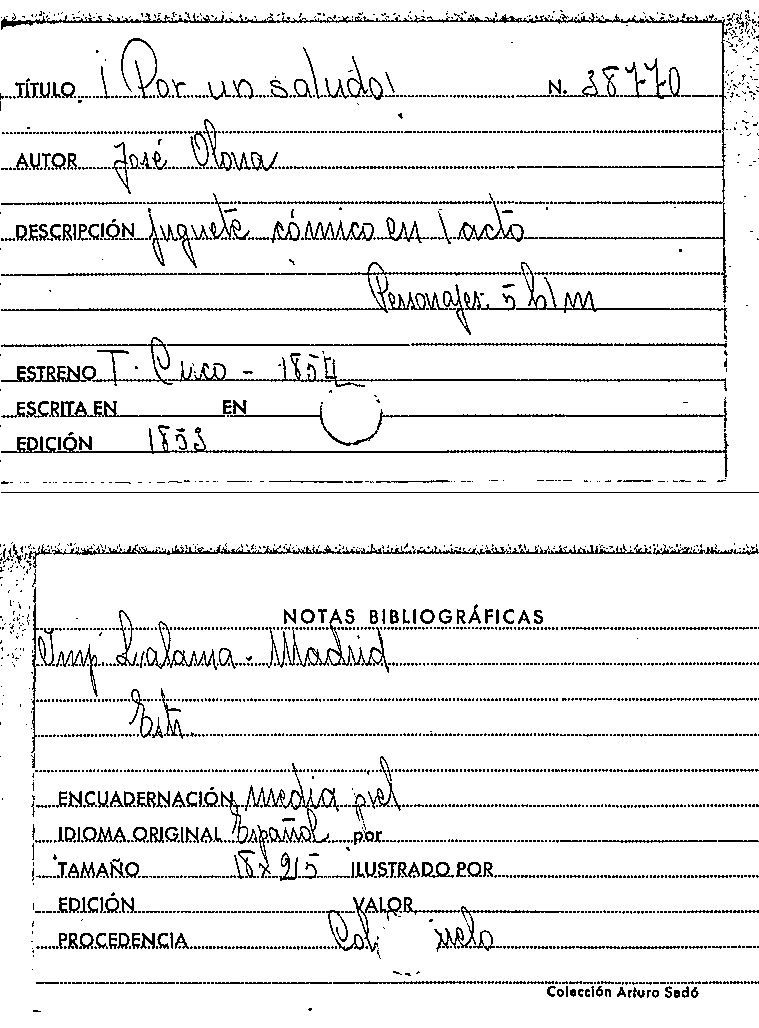 TÍTULO ¡Por un saludo! N. 38770
AUTOR José Olona
DESCRIPCIÓN juguete cómico en 1 acto
Personajes. 5 h 1 m
ESTRENO T. Circo - 1854
ESCRITA EN EN
EDICIÓN 1853
NOTAS BIBLIOGRÁFICAS
Imp Lalama. Madrid
ENCUADERNACIÓN media piel
IDIOMA ORIGINAL Español por
TAMAÑO 18x 9/5 ILUSTRADO POR
EDICIÓN VALOR
PROCEDENCIA
Colección Arturo Sedó